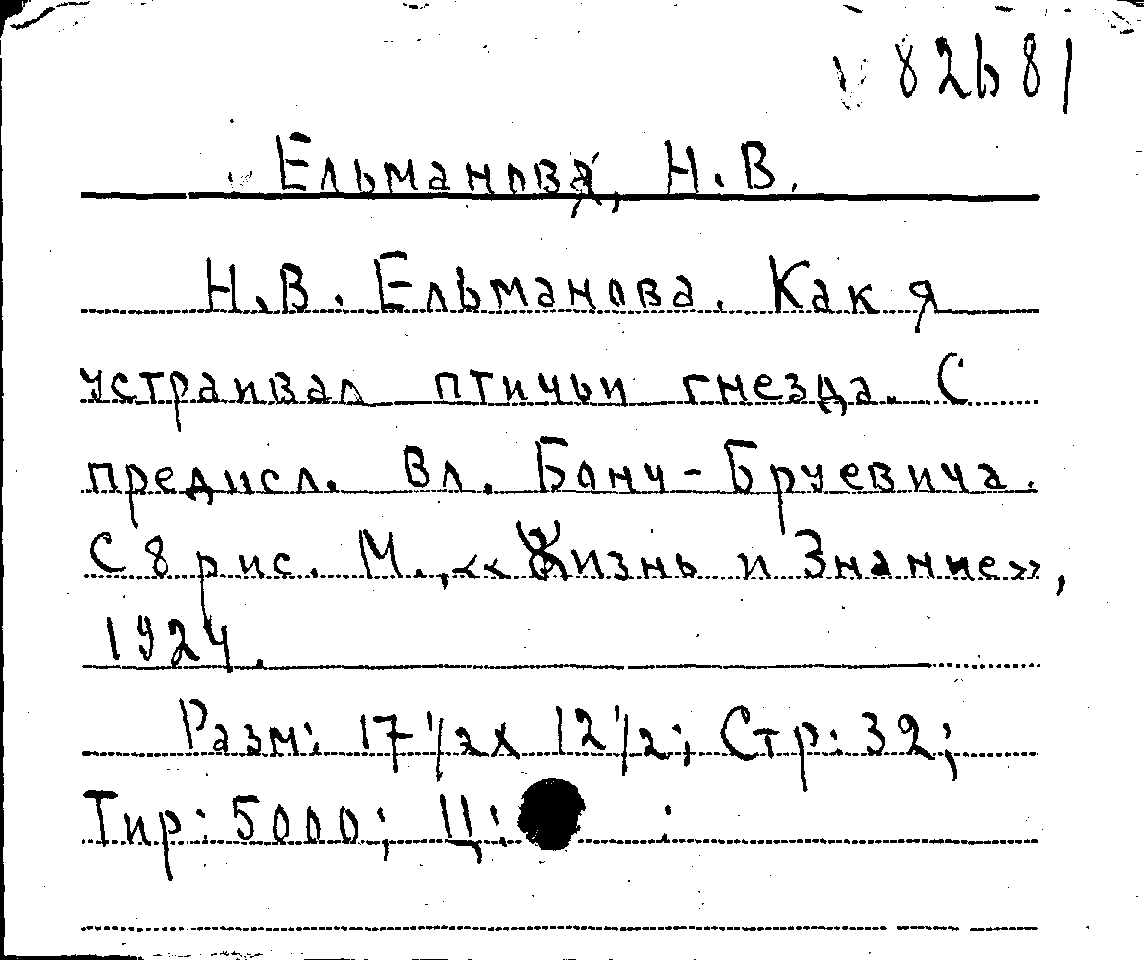 82681
Ельманова, Н. В.
Н. В. Ельманова. Как я
устраивал птичьи гнезда. С
предисл. Вл. Бонч-Бруевича.
С 8 рис. М., «Жизнь и Знание»,
1924.
Разм: 17 1/2 x 12 1/2; Стр: 32;
Тир: 5000; Ц: :